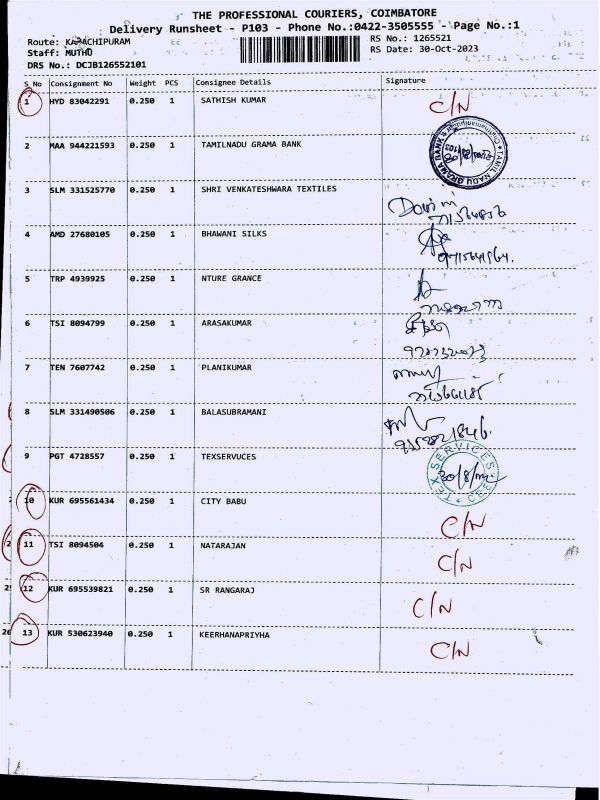 THE PROFESSIONAL COURIERS, COIMBATORE
Delivery Runsheet - P103 - Phone No.:0422-3505555 - Page No.:1
Route: KAPACHIPURAM
RS No.: 1265521
Staff: MUTHU
RS Date: 30-Oct-2023
DRS No.: DCJB126552101
S No Consignment No Weight PCS Consignee Details Signature
1 HYD 83042291 0.250 1 SATHISH KUMAR C/N
2 MAA 944221593 0.250 1 TAMILNADU GRAMA BANK
TAMIL NADU GRAMA BANK
3 SLM 331525770 0.250 1 SHRI VENKATESHWARA TEXTILES
4 AMD 27680105 0.250 1 BHAWANI SILKS
5 TRP 4939925 0.250 1 NTURE GRANCE
6 TSI 8094799 0.250 1 ARASAKUMAR
7 TEN 7607742 0.250 1 PLANIKUMAR
8 SLM 331490506 0.250 1 BALASUBRAMANI
9 PGT 4728557 0.250 1 TEXSERVUCES
TEX SERVICES
10 KUR 695561434 0.250 1 CITY BABU C/N
11 TSI 8094504 0.250 1 NATARAJAN C/N
12 KUR 695539821 0.250 1 SR RANGARAJ C/N
13 KUR 530623940 0.250 1 KEERHANAPRIYHA C/N